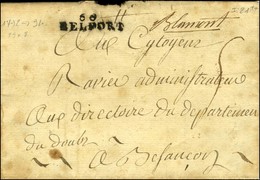 66
BELFORT
Blamont
Aux Cytoyens
Ravier administrateur
Aux directoire du departemen
du doubs
a Besançon